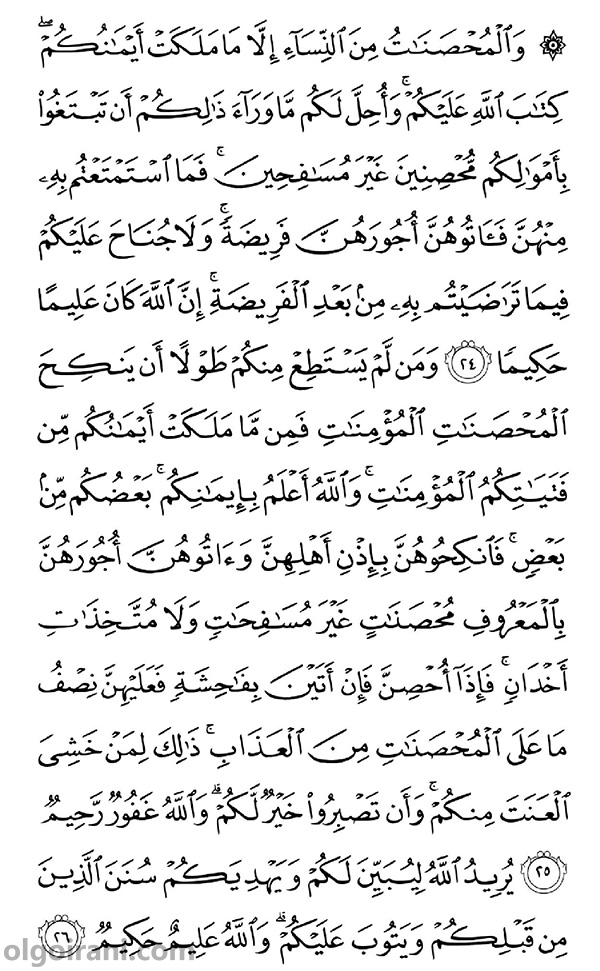 ۞ وَٱلْمُحْصَنَٰتُ مِنَ ٱلنِّسَآءِ إِلَّا مَا مَلَكَتْ أَيْمَٰنُكُمْ ۖ
كِتَٰبَ ٱللَّهِ عَلَيْكُمْ ۚ وَأُحِلَّ لَكُم مَّا وَرَآءَ ذَٰلِكُمْ أَن تَبْتَغُوا۟
بِأَمْوَٰلِكُم مُّحْصِنِينَ غَيْرَ مُسَٰفِحِينَ ۚ فَمَا ٱسْتَمْتَعْتُم بِهِۦ
مِنْهُنَّ فَـَٔاتُوهُنَّ أُجُورَهُنَّ فَرِيضَةً ۚ وَلَا جُنَاحَ عَلَيْكُمْ
فِيمَا تَرَٰضَيْتُم بِهِۦ مِنۢ بَعْدِ ٱلْفَرِيضَةِ ۚ إِنَّ ٱللَّهَ كَانَ عَلِيمًا
حَكِيمًا ٢٤ وَمَن لَّمْ يَسْتَطِعْ مِنكُمْ طَوْلًا أَن يَنكِحَ
ٱلْمُحْصَنَٰتِ ٱلْمُؤْمِنَٰتِ فَمِن مَّا مَلَكَتْ أَيْمَٰنُكُم مِّن
فَتَيَٰتِكُمُ ٱلْمُؤْمِنَٰتِ ۚ وَٱللَّهُ أَعْلَمُ بِإِيمَٰنِكُم ۚ بَعْضُكُم مِّنۢ
بَعْضٍ ۚ فَٱنكِحُوهُنَّ بِإِذْنِ أَهْلِهِنَّ وَءَاتُوهُنَّ أُجُورَهُنَّ
بِٱلْمَعْرُوفِ مُحْصَنَٰتٍ غَيْرَ مُسَٰفِحَٰتٍ وَلَا مُتَّخِذَٰتِ
أَخْدَانٍ ۚ فَإِذَآ أُحْصِنَّ فَإِنْ أَتَيْنَ بِفَٰحِشَةٍ فَعَلَيْهِنَّ نِصْفُ
مَا عَلَى ٱلْمُحْصَنَٰتِ مِنَ ٱلْعَذَابِ ۚ ذَٰلِكَ لِمَنْ خَشِىَ
ٱلْعَنَتَ مِنكُمْ ۚ وَأَن تَصْبِرُوا۟ خَيْرٌ لَّكُمْ ۗ وَٱللَّهُ غَفُورٌ رَّحِيمٌ
٢٥ يُرِيدُ ٱللَّهُ لِيُبَيِّنَ لَكُمْ وَيَهْدِيَكُمْ سُنَنَ ٱلَّذِينَ
مِن قَبْلِكُمْ وَيَتُوبَ عَلَيْكُمْ ۗ وَٱللَّهُ عَلِيمٌ حَكِيمٌ ٢٦
olgoirani.com